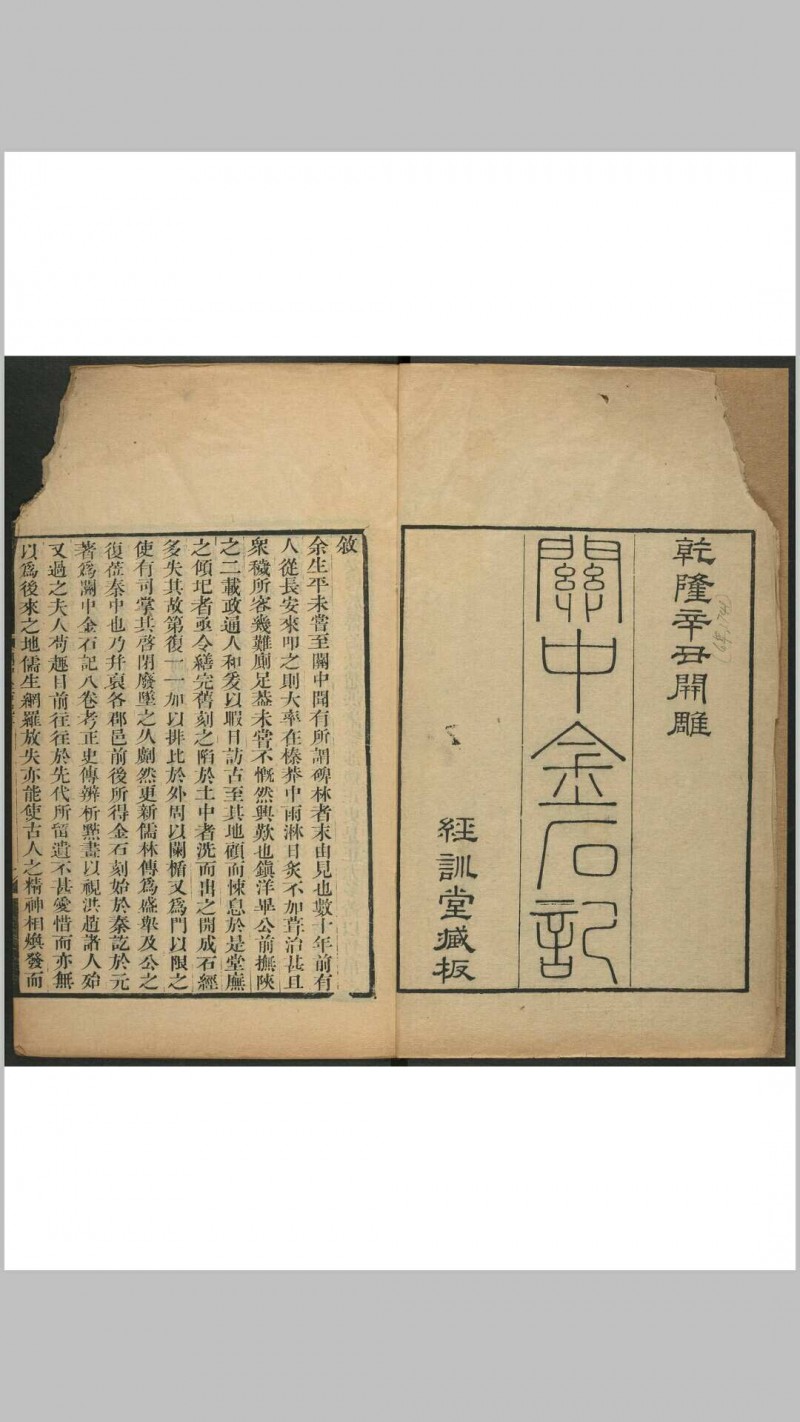 乾隆辛丑開雕
關中金石記
經訓堂藏板
敘
余生平未嘗至關中聞有所謂碑林者末由見也數十年前有
人從長安來叩之則大率在榛莽中雨淋日炙不加葺治甚且
衆穢所容幾難廁足葢未嘗不慨然興歎也鎭洋畢公前撫陜
之二載政通人和爰以暇日訪古至其地顧而悚息於是堂廡
之傾圮者亟令繕完舊刻之陷於土中者洗而出之開成石經
多失其故第復一一加以排比於外周以闌楯又爲門以限之
使有司掌其啓閉廢墜之久劃然更新儒林傳爲盛舉及公之
復蒞秦中也乃幷裒各郡邑前後所得金石刻始於秦訖於元
著爲關中金石記八卷考正史傳辨析點畫以視洪趙諸人殆
又過之夫人苟趣目前往往於先代所留遺不甚愛惜而亦無
以爲後來之地儒生網羅放失亦能使古人之精神相煥發而